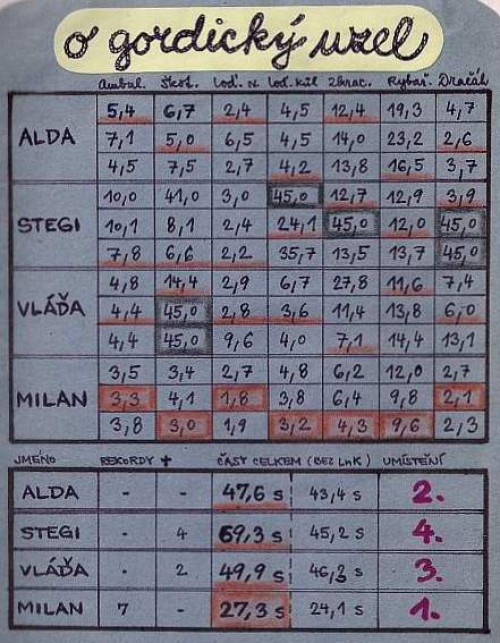 o gordický uzel
Ambul. Škot. Loď. N. Lod. kůl Zkrac. Rybař. Dračák
ALDA
5,4 6,7 2,4 4,5 12,4 19,3 4,7
7,1 5,0 6,5 4,5 14,0 23,2 2,6
4,5 7,5 2,7 4,2 13,8 16,5 3,7
STEGI
10,0 41,0 3,0 45,0 12,7 12,9 3,9
10,1 8,1 2,4 24,1 45,0 12,0 45,0
7,8 6,6 2,2 35,7 13,5 13,7 45,0
VLÁĎA
4,8 14,4 2,9 6,7 27,8 11,6 7,4
4,4 45,0 2,8 3,6 11,4 13,8 6,0
4,4 45,0 9,6 4,0 7,1 14,4 13,1
MILAN
3,5 3,4 2,7 4,8 6,2 12,0 2,7
3,3 4,1 1,8 3,8 6,4 9,8 2,1
3,8 3,0 1,9 3,2 4,3 9,6 2,3
JMÉNO REKORDY + ČAST CELKEM (BEZ LNK) UMÍSTĚNÍ
ALDA - - 47,6 s 43,4 s 2.
STEGI - 4 69,3 s 45,2 s 4.
VLÁĎA - 2 49,9 s 46,3 s 3.
MILAN 7 - 27,3 s 24,1 s 1.